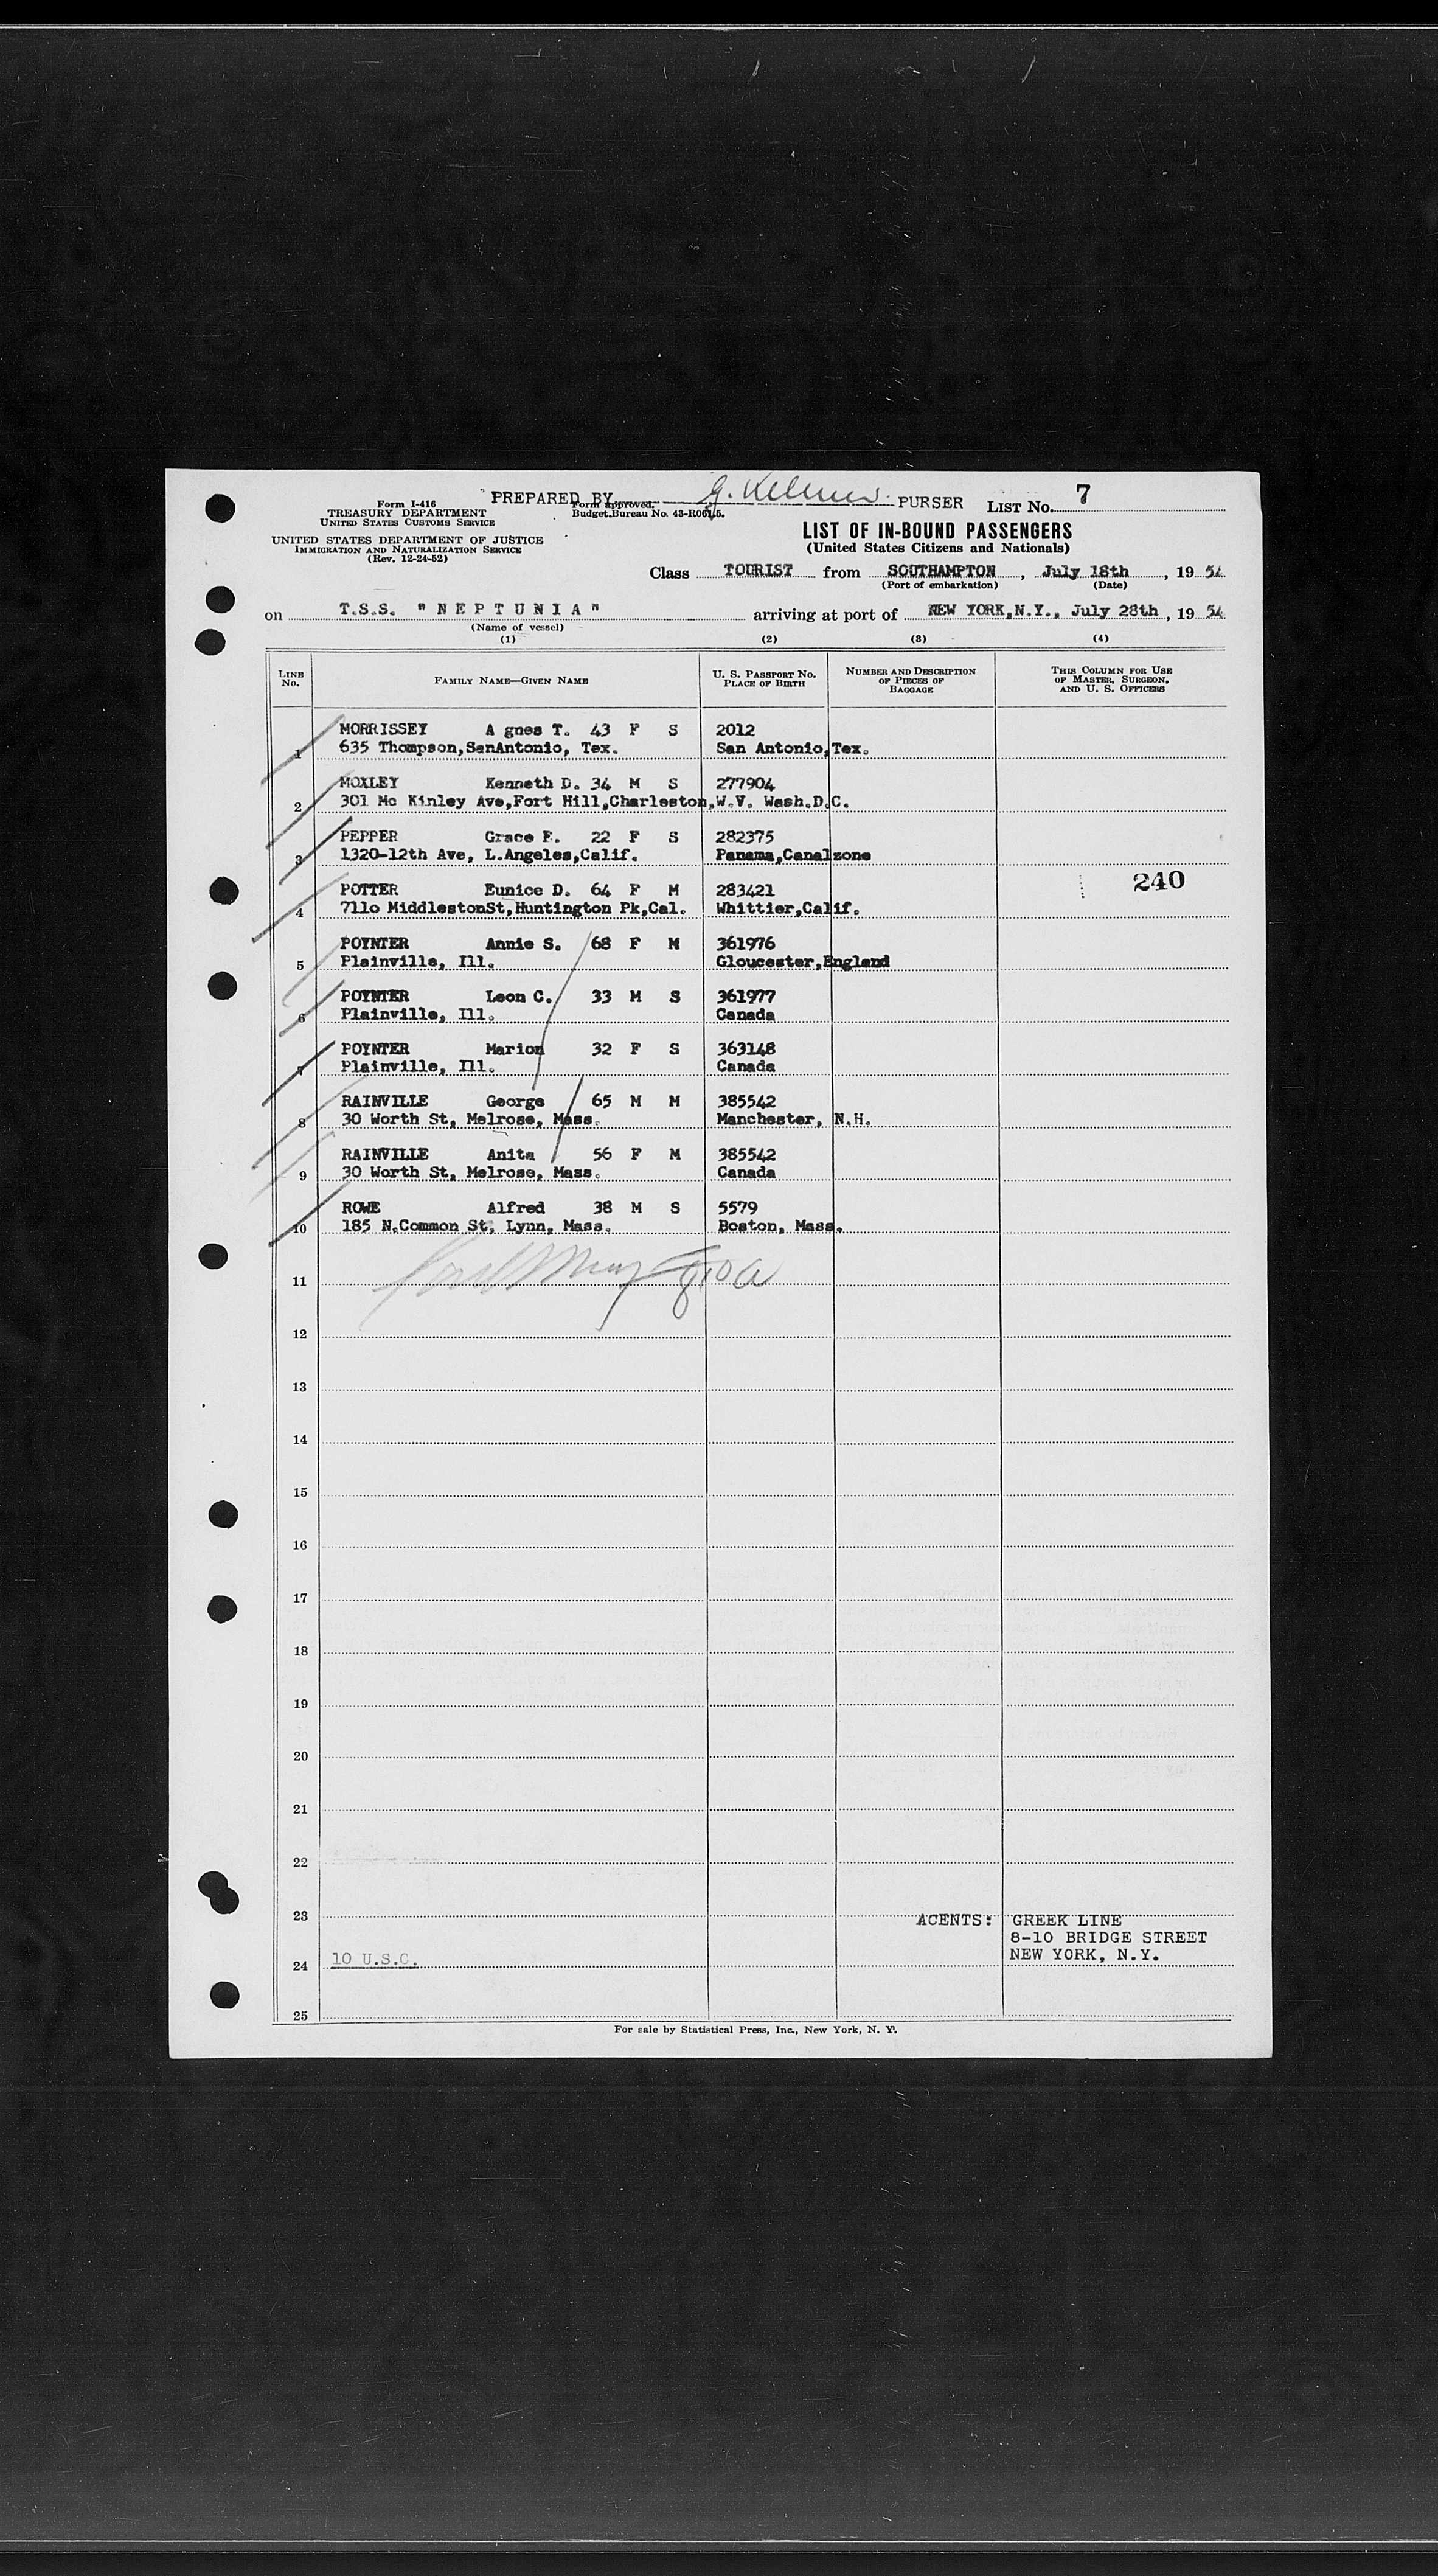 PREPARED BY G. Kelmus. PURSER LIST No. 7
Form I-416
TREASURY DEPARTMENT
UNITED STATES CUSTOMS SERVICE
Form approved.
Budget Bureau No. 43-R065.5.
UNITED STATES DEPARTMENT OF JUSTICE
IMMIGRATION AND NATURALIZATION SERVICE
(Rev. 12-24-52)
LIST OF IN-BOUND PASSENGERS
(United States Citizens and Nationals)
Class TOURIST from SOUTHAMPTON, July 18th, 19 54
(Port of embarkation) (Date)
on T.S.S. "NEPTUNIA" arriving at port of NEW YORK,N.Y., July 28th, 19 54
(Name of vessel)
(1) (2) (3) (4)
LINE No. FAMILY NAME—GIVEN NAME U. S. PASSPORT No. PLACE OF BIRTH NUMBER AND DESCRIPTION OF PIECES OF BAGGAGE THIS COLUMN FOR USE OF MASTER, SURGEON, AND U. S. OFFICERS
MORRISSEY A gnes T. 43 F S 2012
1 635 Thompson,SanAntonio, Tex. San Antonio,Tex.
MOXLEY Kenneth D. 34 M S 277904
2 301 Mc Kinley Ave,Fort Hill,Charleston,W.V. Wash.D.C.
PEPPER Grace F. 22 F S 282375
3 1320-12th Ave, L.Angeles,Calif. Panama,Canalzone
POTTER Eunice D. 64 F M 283421 240
4 7llo MiddlestonSt,Huntington Pk,Cal. Whittier,Calif.
POYNTER Annie S. 68 F M 361976
5 Plainville, Ill. Gloucester,England
POYNTER Leon C. 33 M S 361977
6 Plainville, Ill. Canada
POYNTER Marion 32 F S 363148
7 Plainville, Ill. Canada
RAINVILLE George 65 M M 385542
8 30 Worth St, Melrose, Mass. Manchester, N.H.
RAINVILLE Anita 56 F M 385542
9 30 Worth St, Melrose, Mass. Canada
ROWE Alfred 38 M S 5579
10 185 N.Common St, Lynn, Mass. Boston, Mass.
11
12
13
14
15
16
17
18
19
20
21
22
23 AGENTS: GREEK LINE
8-10 BRIDGE STREET
24 10 U.S.C. NEW YORK, N.Y.
25
For sale by Statistical Press, Inc., New York, N. Y.